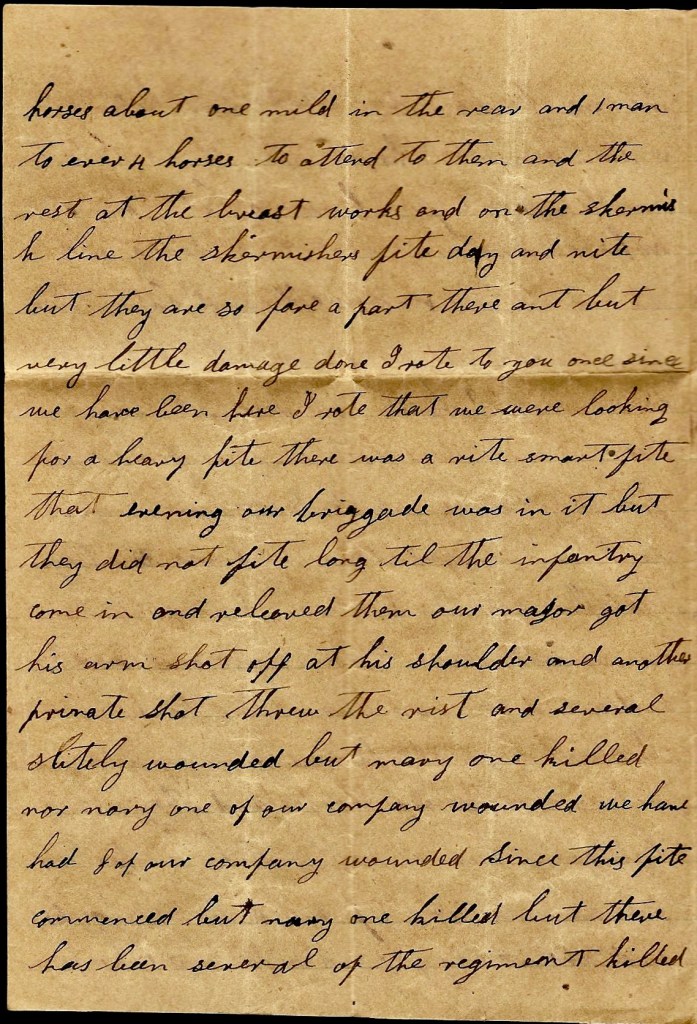 horses about one mild in the rear and 1 man
to ever 4 horses to attend to them and the
rest at the breast works and on the skermis
h line the skermishers fite day and nite
but they are so fare a part there ant but
very little damage done I rote to you once since
we have been here I rote that we were looking
for a heavy fite there was a rite smart fite
that evening our briggade was in it but
they did not fite long til the infantry
come in and releaved them our major got
his arm shot off at his shoulder and another
private shot threw the rist and several
slitely wounded but nary one killed
nor nary one of our company wounded we have
had 8 of our company wounded since this fite
commenced but nary one killed but there
has been several of the regimeont killed